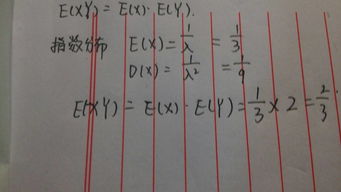 E(XY) = E(X)·E(Y).
指数分布 E(X) = 1/λ = 1/3
D(X) = 1/λ² = 1/9
E(XY) = E(X)·E(Y) = 1/3 × 2 = 2/3